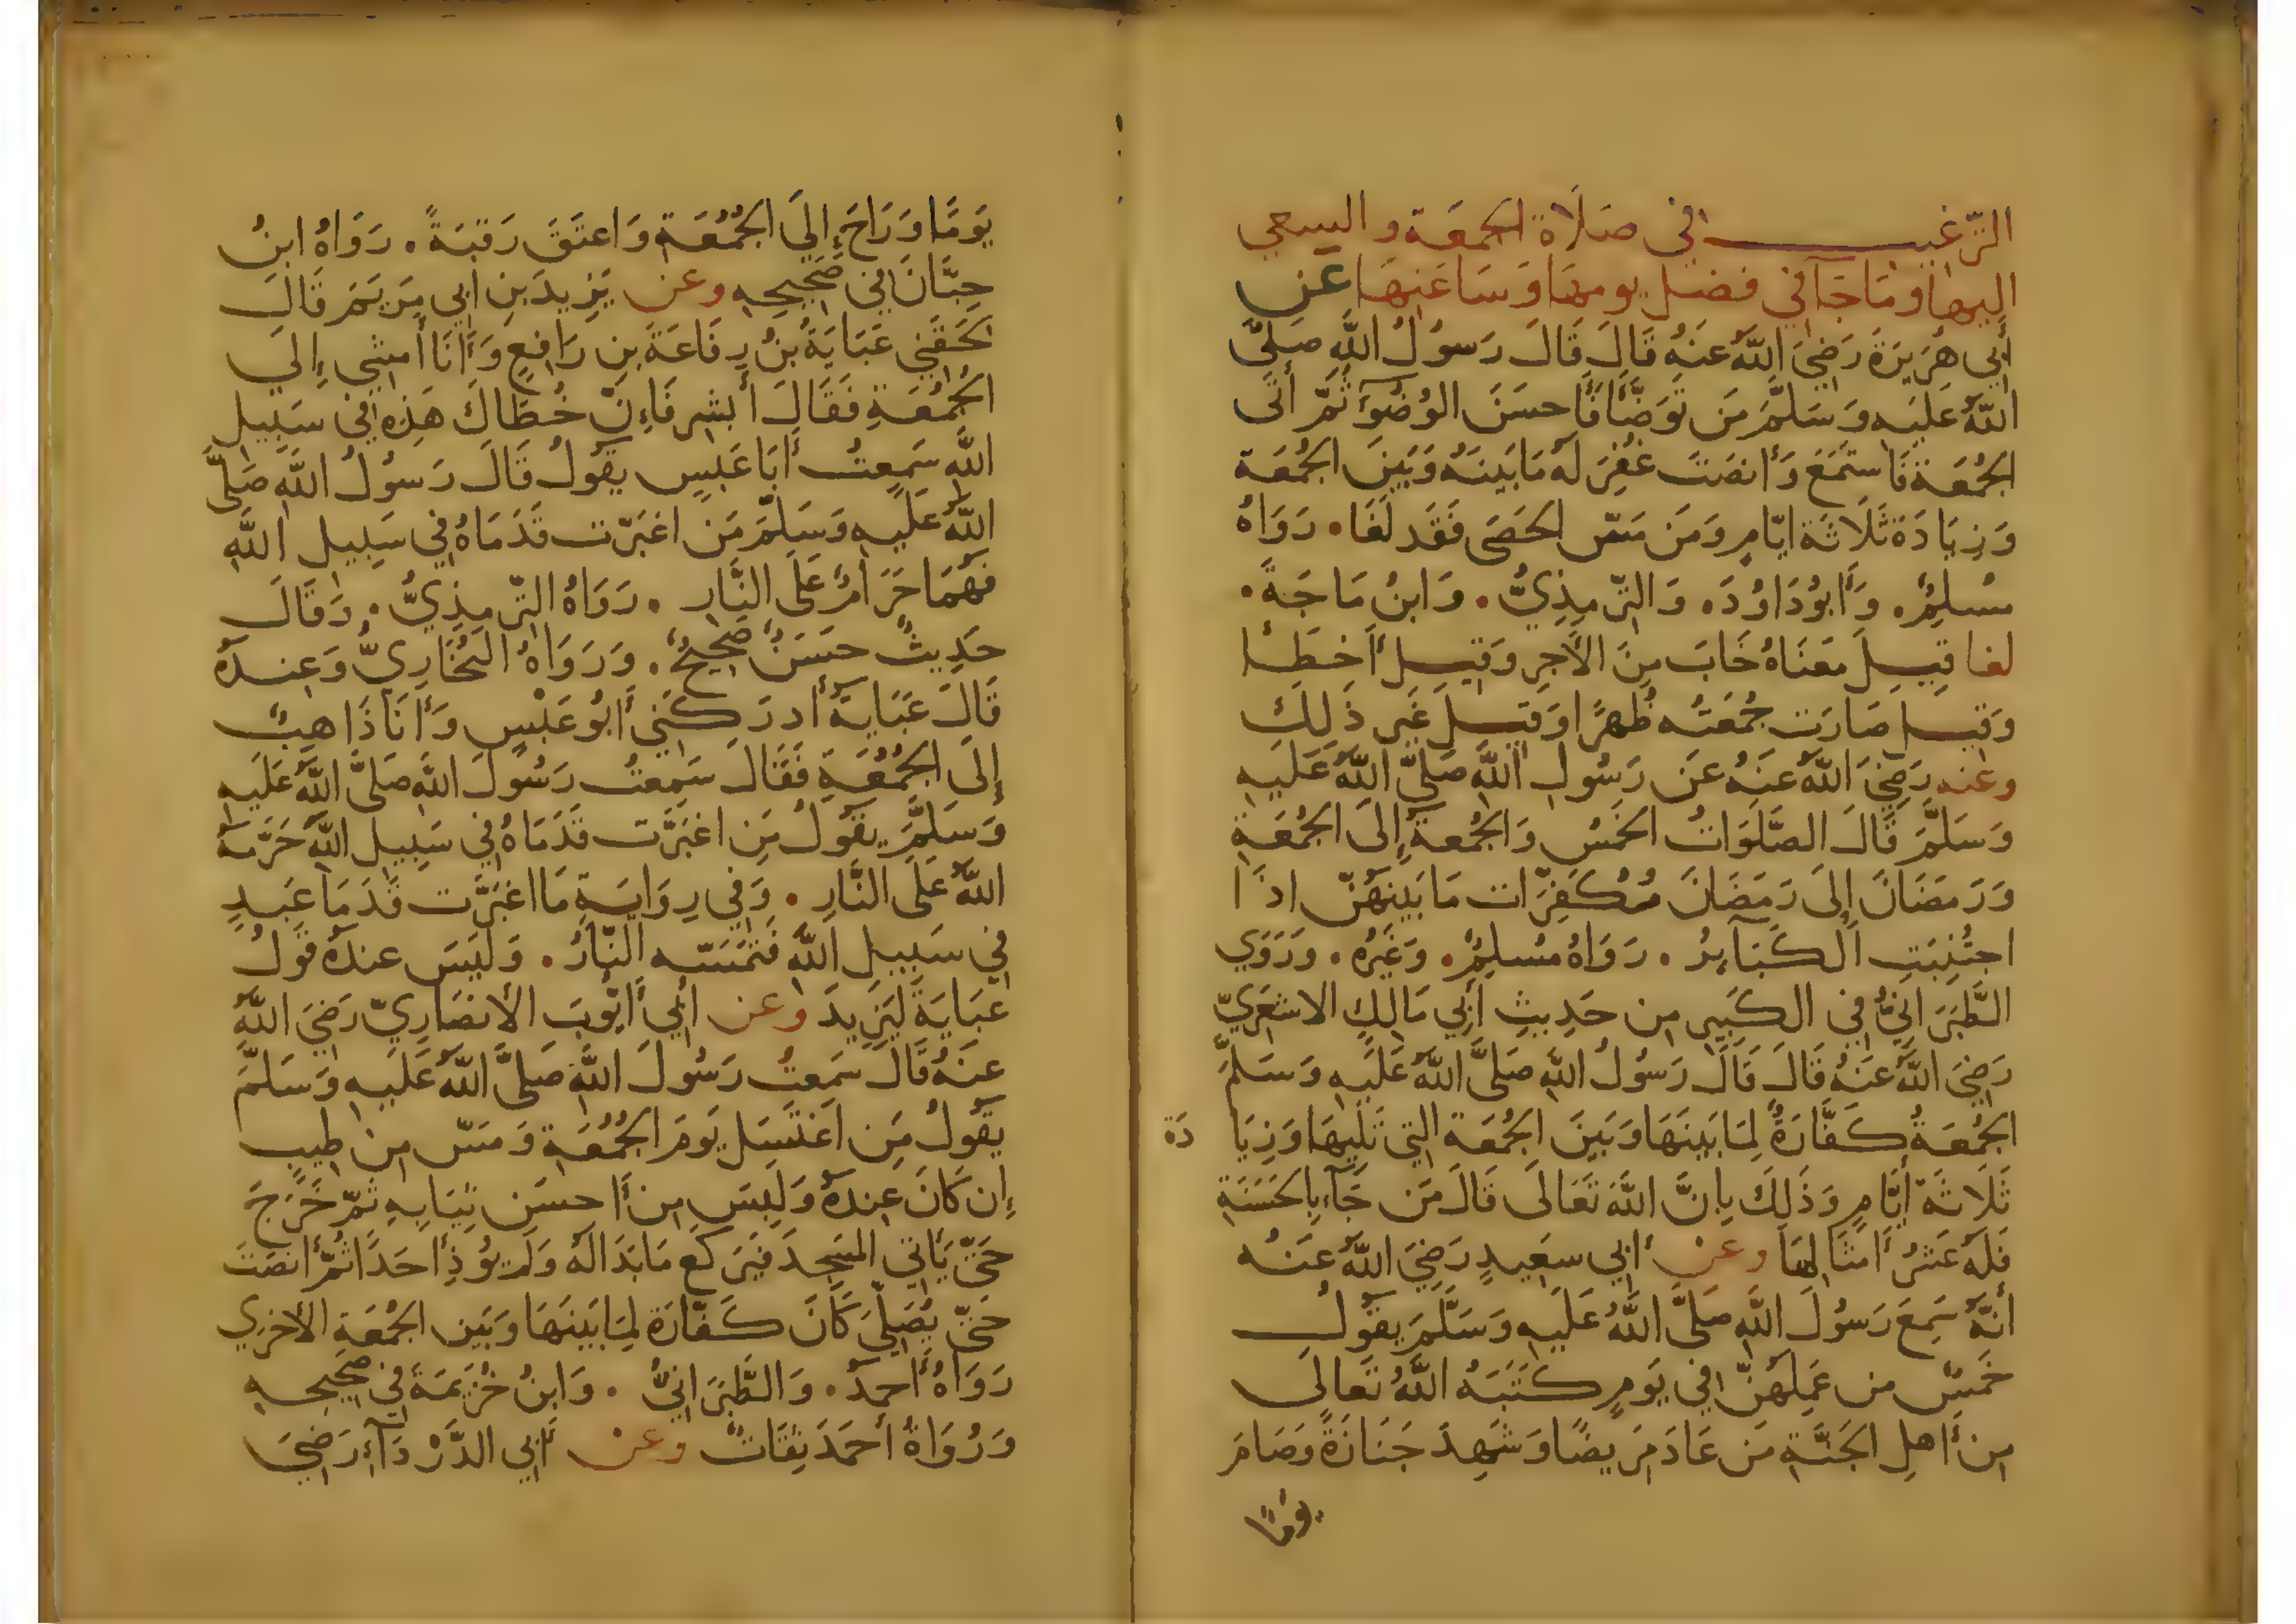 الترغيب في صلاة الجمعة والسعي
اليها وما جآ في فضل يومها وساعتها عن
أَبي هُرَيرَةَ رَضِيَ اللَّهُ عَنهُ قَالَ قَالَ رَسُولُ اللَّهِ صَلَّى
اللَّهُ عَلَيهِ وَسَلَّمَ مَن تَوَضَّأَ فَأَحسَنَ الوُضُوَ ثُمَّ أَتَى
الجُمُعَةَ فَاستَمَعَ وَأَنصَتَ غُفِرَ لَهُ مَا بَينَهُ وَبَينَ الجُمُعَة
وَزِيَادَة ثَلَاثَة ايَّامٍ وَمَن مَسَّ الحَصَى فَقَد لَغَا . رَوَاهُ
مُسلِمٌ . وَأَبُو دَاوُدَ . وَالتِّرمِذِيُّ . وَابنُ مَاجَةَ .
لغا قِيلَ مَعنَاهُ خَابَ مِنَ الأَجرِ وَقِيلَ أَخطَا
وَقيل صَارَت جُمُعَتُه ظُهرًا وَقيلَ غَير ذَلِكَ
وعنه رَضِيَ اللَّهُ عَنهُ عَن رَسُولِ اللَّهِ صَلَّى اللَّهُ عَلَيهِ
وَسَلَّمَ قَالَ الصَّلَوَاتُ الخَمسُ وَالجُمعَةُ إِلَى الجُمُعَةِ
وَرَمَضَانَ إِلَى رَمَضَانَ مُكَفِّرَات مَا بَينَهُنَّ اذَا
اجتُنِبَتِ الكَبَآيِرُ . رَوَاهُ مُسلِمٌ . وَغَيرُه . وَرَوَي
الطَّبَرَانِيُّ فِي الكَبِيرِ مِن حَدِيثِ أَبِي مَالِكٍ الاشعَرِيّ
رَضِيَ اللَّهُ عَنهُ قَالَ قَالَ رَسُولُ اللَّهِ صَلَّى اللَّهُ عَلَيهِ وَسَلَّمَ
الجُمُعَةُ كَفَّارَةٌ لِمَا بَينَهَا وَبَينَ الجُمُعَة التِي تَلِيهَا وَزِيَا
دَة
ثَلَاثَة أَيَّامٍ وَذَلِكَ بِانَّ اللَّهَ تَعَالَى قَالَ مَن جَآءَ بِالحَسَنَةِ
فَلَهُ عَشرُ أَمثَالِهَا وعن أَبي سعَيدٍ رَضِيَ اللَّهُ عَنهُ
أَنَّهُ سَمِعَ رَسُولَ اللَّهِ صَلَّى اللَّهُ عَلَيهِ وَسَلَّمَ يقُولُ
خَمسٌ مَن عَمِلَهُنَّ فِي يَومٍ كَتَبَهُ اللَّهُ تَعَالَى
مِن أَهلِ الجَنَّةِ مَن عَادَ مَرِيضًا وَشَهِدَ جَنَازَةً وَصَامَ
يومًا
يَومًا وَرَاحَ إِلَي الجُمُعَةِ وَاعتَقَ رَقبَةً . رَوَاهُ ابنُ
حِبَّانَ فِي صَحِيحِهِ وعن يَزِيدَ بنِ ابِي مَريَمَ قَالَ
لَحَقَنِي عَبَايَةُ بنُ رِفَاعَةَ بنِ رَافِعٍ وَأَنَا أَمشِي إِلَي
الجُمُعَةِ فَقَالَ أَبشِر فَإِنَّ خُطَاكَ هَذِهِ فِي سَبِيلِ
اللَّهِ سَمِعتُ أَبَا عَبسٍ يقُولُ قَالَ رَسُولُ اللَّهِ صَلَّى
اللَّهُ عَلَيهِ وَسَلَّمَ مَن اغبَرَّت قَدَمَاهُ فِي سَبِيلِ اللَّهِ
فَهُمَا حَرَامٌ عَلَى النَّارِ . رَوَاهُ التِّرمِذِيُّ . وَقَالَ
حَدِيثٌ حَسَنٌ صَحِيحٌ . وَرَوَاهُ البُخَارِيُّ وَعِندَهُ
قَالَ عَبَايَةُ أَدرَكَنِي أَبُو عَبسٍ وَأَنَا ذَاهِبٌ
إِلَى الجُمُعَةِ فَقَالَ سَمِعتُ رَسُولَ اللَّهِ صَلَّى اللَّهُ عَلَيهِ
وَسَلَّمَ يقُولُ مَن اغبَرَّت قَدَمَاهُ فِي سَبِيلِ اللَّهِ حَرَّمَهُ
اللَّهُ عَلَى النَّارِ . وَفِي رِوَايَةٍ مَا اغبَرَّت قَدَمَا عَبدٍ
فِي سَبِيلِ اللَّهِ فَتَمَسّه النَّارُ . وَلَيسَ عندَهُ قَولُ
عَبَايَةَ لِيَزِيدَ وعن أَبِي أَيُّوبَ الأَنصَارِيِّ رَضِيَ اللَّهُ
عَنهُ قَالَ سَمِعتُ رَسُولَ اللَّهِ صَلَّى اللَّهُ عَلَيهِ وَسَلَّمَ
يَقُولُ مَن اغتَسَلَ يَومَ الجُمُعَةِ وَمَسَّ مِن طِيبٍ
إِن كَانَ عِندَهُ وَلَبِسَ مِن أَحسَنِ ثِيَابِهِ ثُمَّ خَرَجَ
حَتَّى يَأتِي المَسجِدَ فَيَركَع مَا بَدَا لَهُ وَلَم يُؤذِ أَحَدًا ثُمَّ أَنصَتَ
حَتَّى يُصَلِّيَ كَانَ كَفَّارَة لِمَا بَينَهَا وَبَين الجُمُعَةِ الأُخرِي
رَوَاهُ أَحمدُ . وَالطَّبَرَانِيُّ . وَابنُ خُزَيمَةَ فِي صَحِيحِهِ
وَرُوَاةُ أَحمَدَ ثِقَاتٌ وعن أَبِي الدَّردَآءِ رَضِيَ